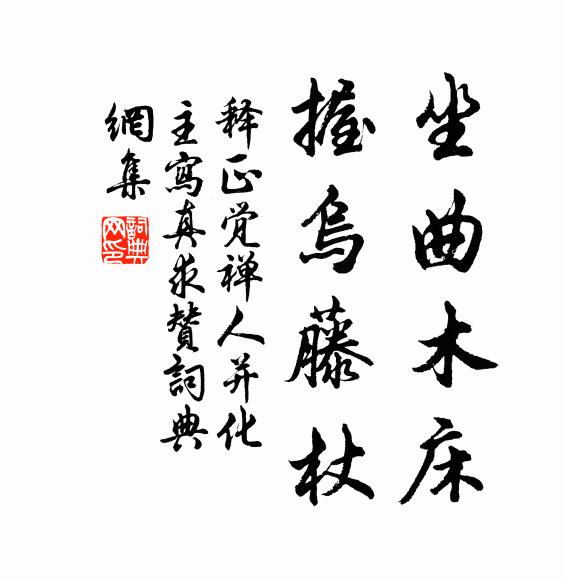 坐曲木床
握烏藤杖
释正觉禅人并化
主寫真求贊詞典
網集
詞典
网印